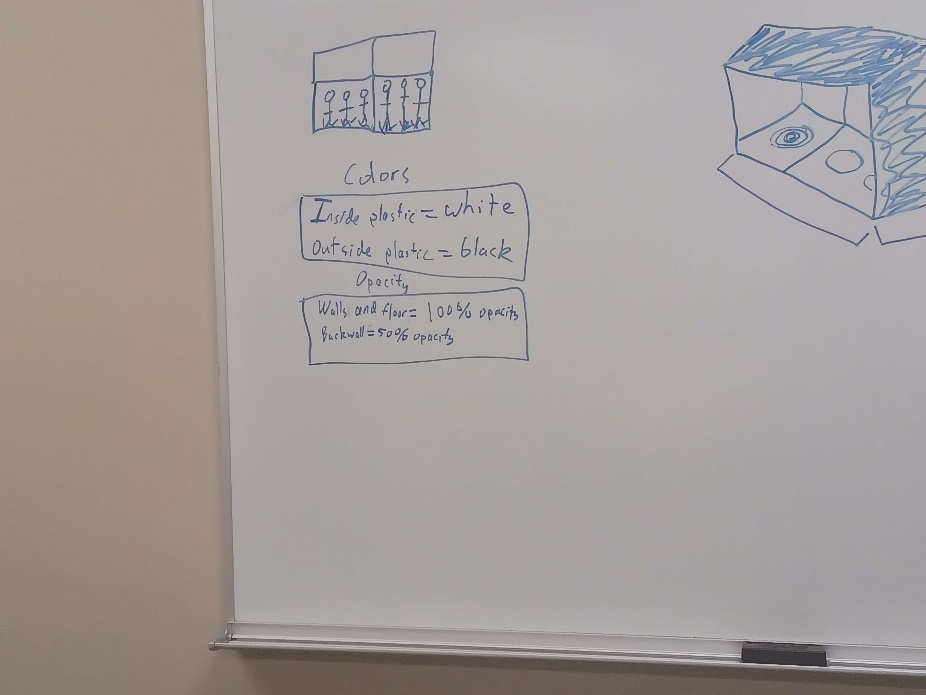 Colors
Inside plastic = white
Outside plastic = black
Opacity
Walls and floor = 100% opacity
Backwall = 50% opacity